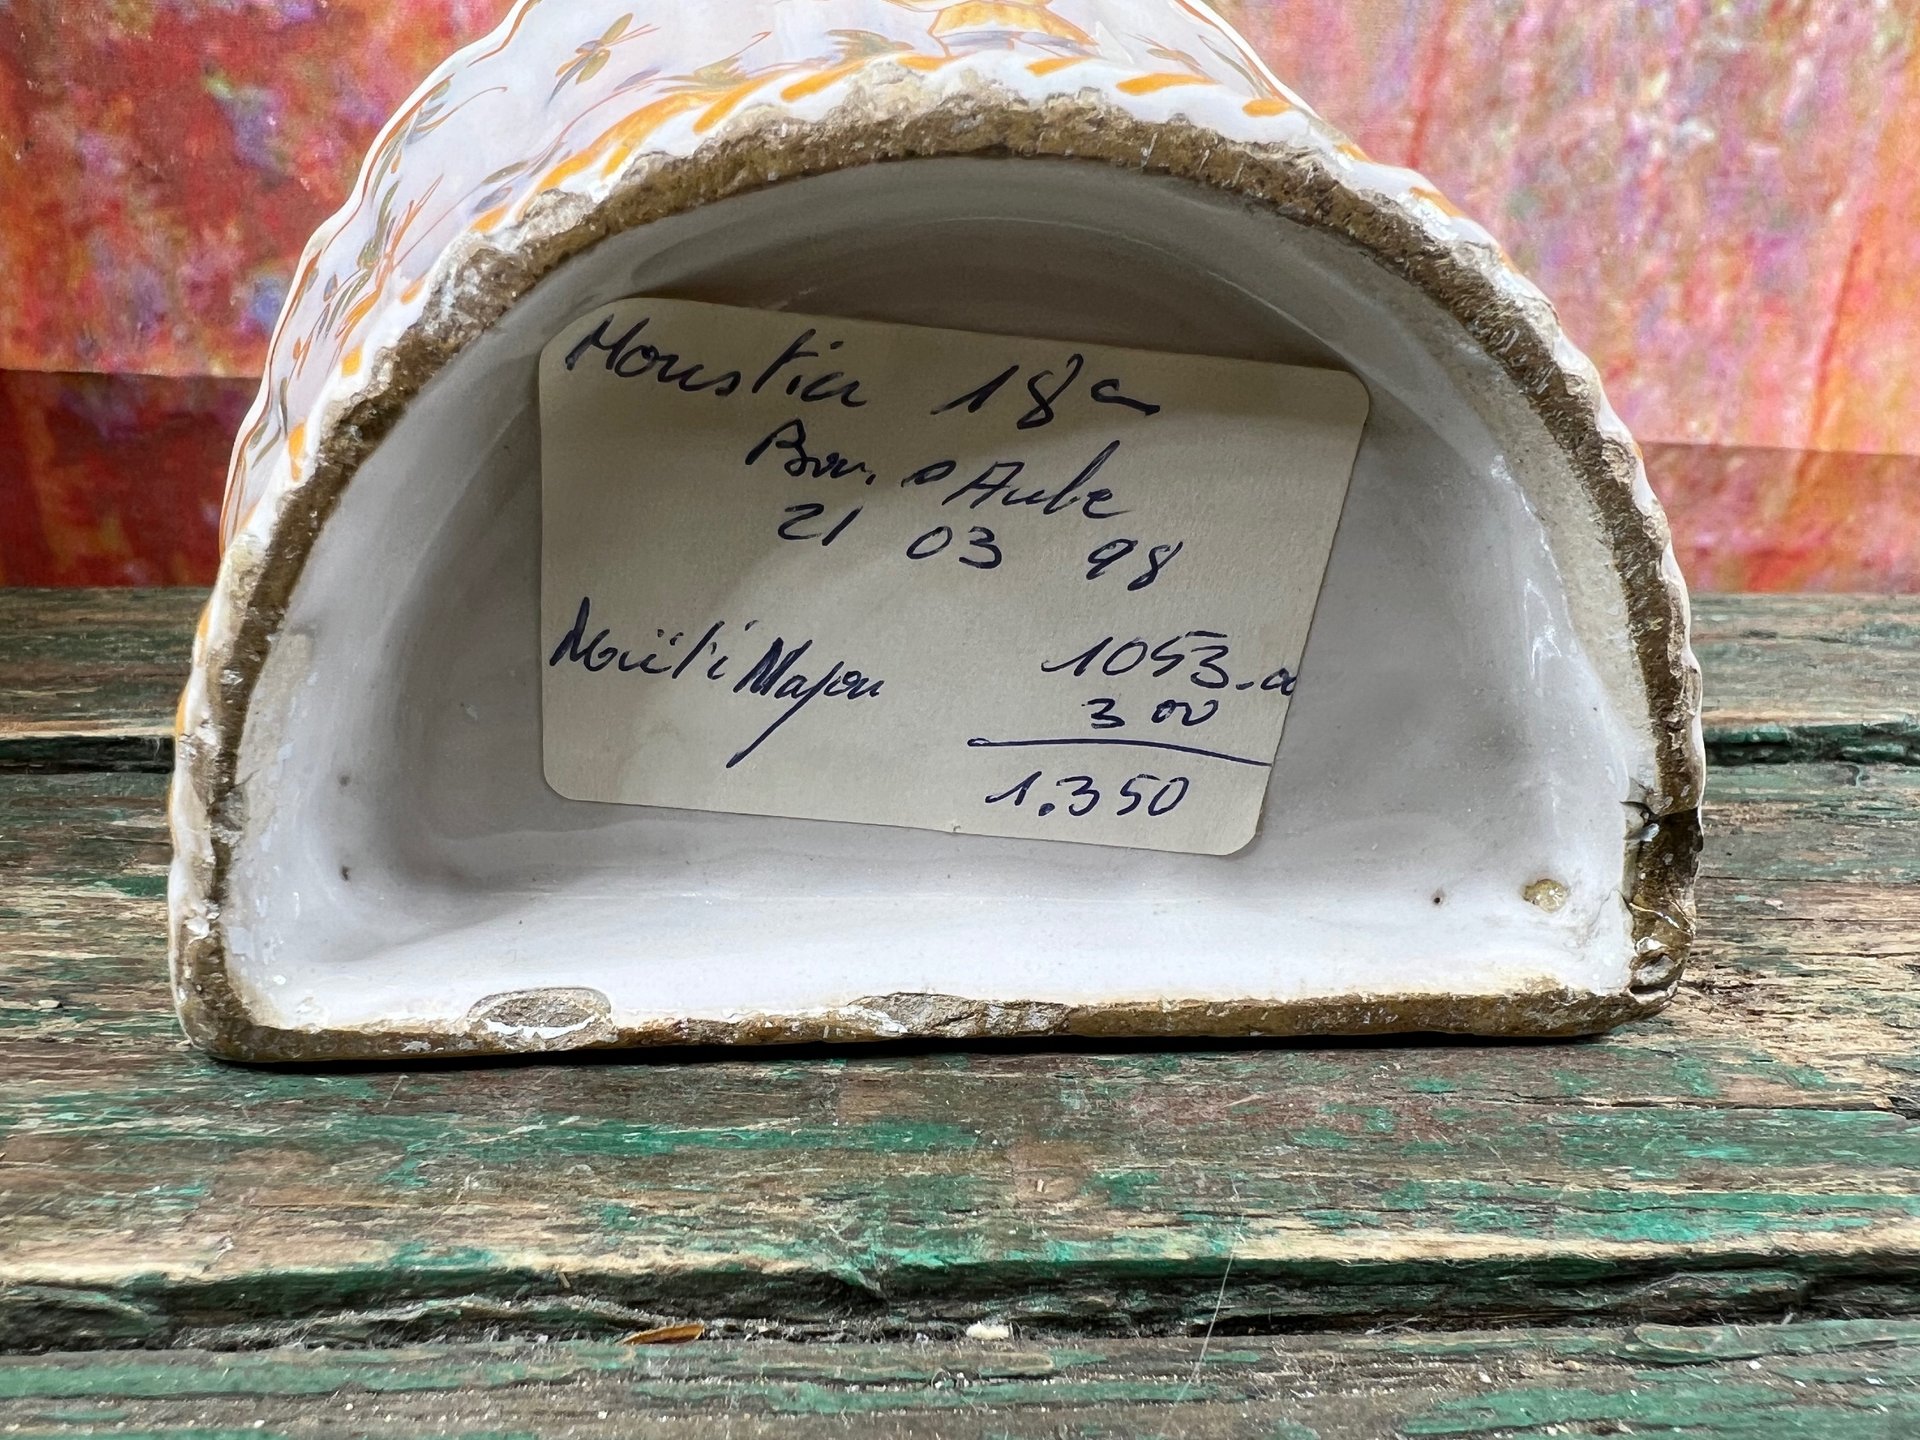 Moustier 18e
Bar s Aube
21 03 98
1053.00
300
1.350